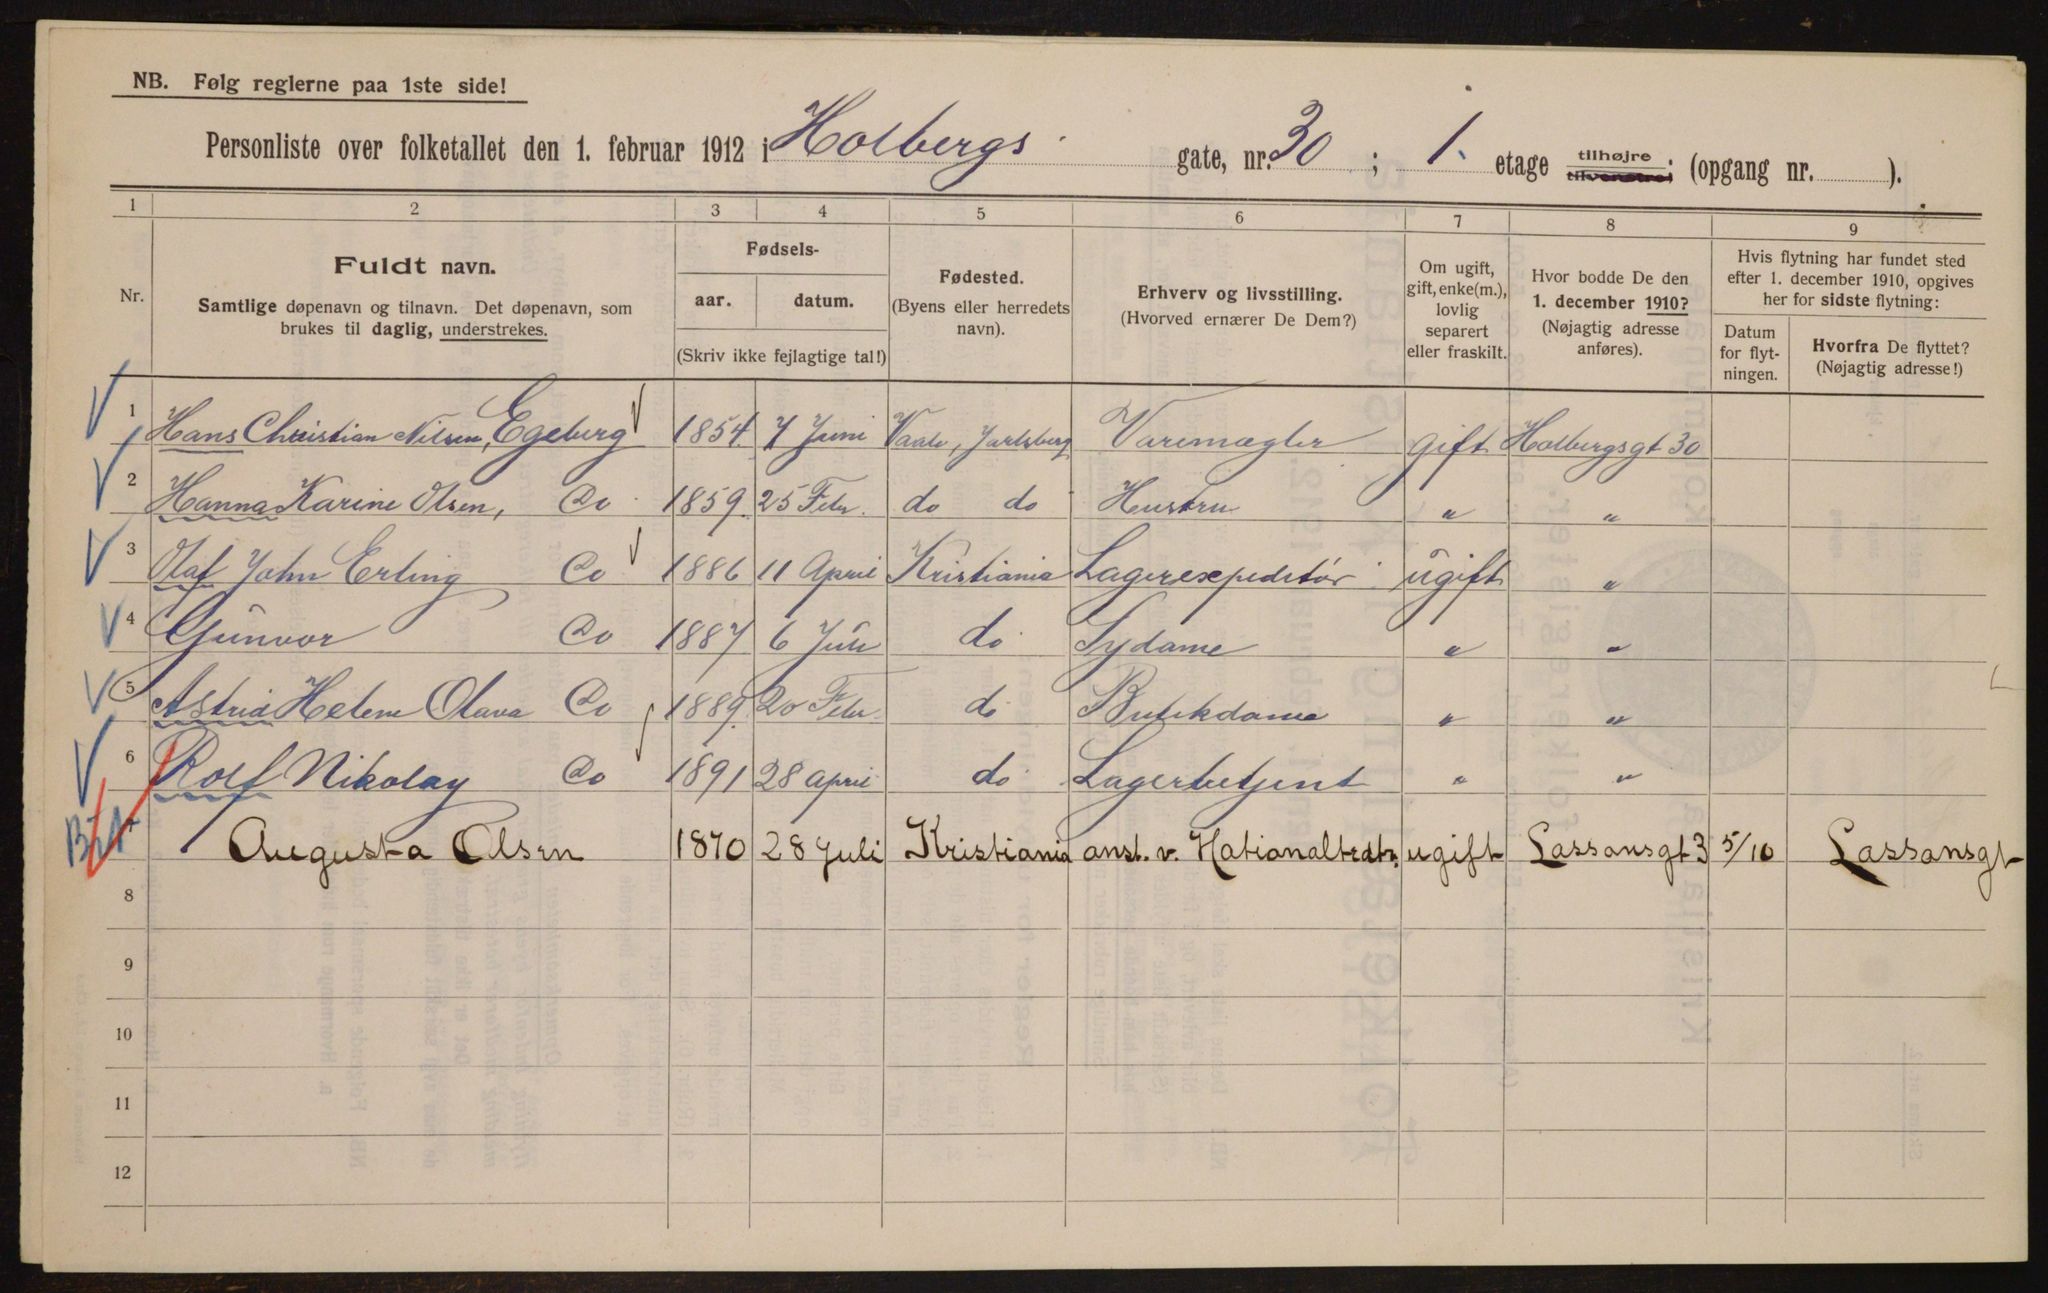 NB. Følg reglerne paa 1ste side!
Personliste over folketallet den 1. februar 1912 i Holbergs gate, nr. 30 ; 1. etage tilhøjre tilvenstre; (opgang nr. ).
1 2 3 4 5 6 7 8 9
Nr.
Fuldt navn.
Samtlige døpenavn og tilnavn. Det døpenavn, som
brukes til daglig, understrekes.
Fødsels-
aar. datum.
(Skriv ikke fejlagtige tal!)
Fødested.
(Byens eller herredets
navn).
Erhverv og livsstilling.
(Hvorved ernærer De Dem?)
Om ugift,
gift, enke(m.),
lovlig
separert
eller fraskilt.
Hvor bodde De den
1. december 1910?
(Nøjagtig adresse
anføres).
Hvis flytning har fundet sted
efter 1. december 1910, opgives
her for sidste flytning:
Datum
for flyt-
ningen.
Hvorfra De flyttet?
(Nøjagtig adresse!)
1 Hans Christian Nilsen, Egeberg 1854. 7 Juni Vaale, Jarlsberg Varemægler gift Holbergsgt 30
2 Hanna Karine Olsen, Do 1859. 25 Febr. do do Hustru " "
3 Olaf John Erling Do 1886 11 April Kristiania Lagerexpeditør ugift "
4 Gunvor Do 1887 6 Juli do Sydame " "
5 Astrid Helene Olava Do 1889. 20 Febr. do Butikdame " "
6 Rolf Nikolay Do 1891 28 April do Lagerbetjent " "
Augusta Olsen 1870 28 Juli Kristiania anst. v. Nationalteatr. ugift Lassonsgt 3 5/10 Lassonsgt
8
9
10
11
12